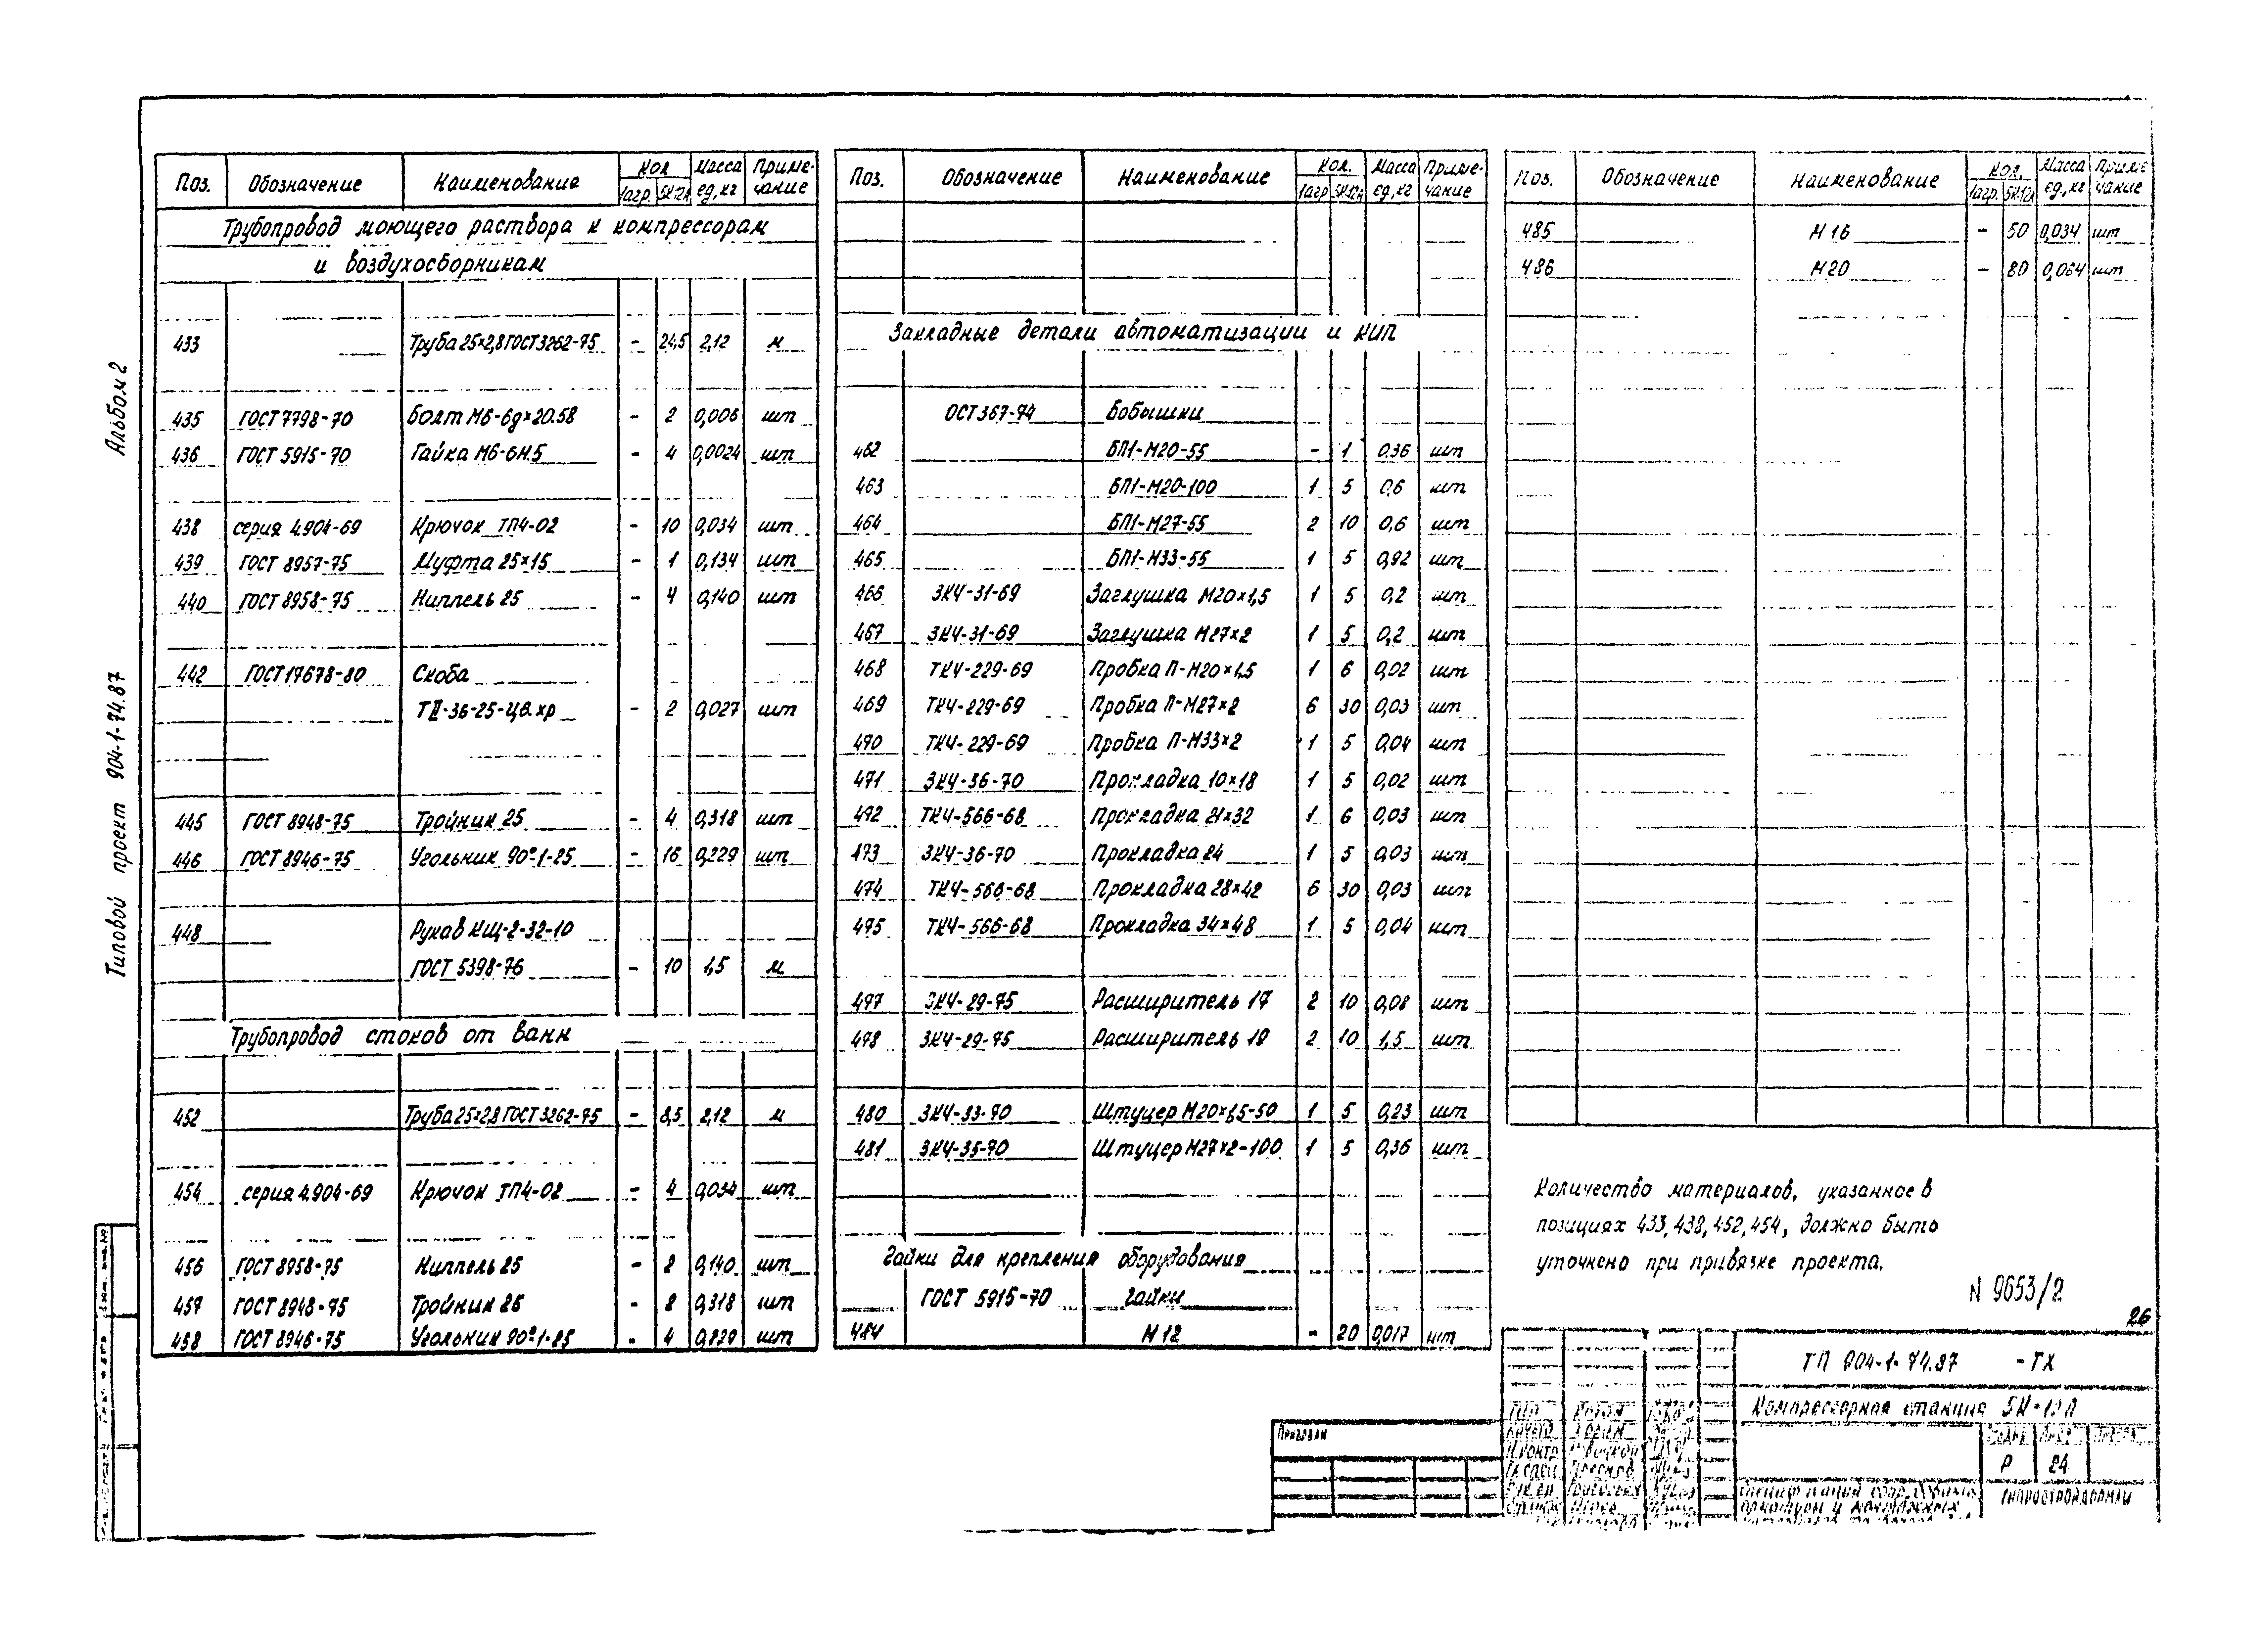 Альбом 2
Типовой проект 904-1-74.87
Поз. Обозначение Наименование Кол Масса ед, кг Приме-чание
1агр. 5К-12А
Трубопровод моющего раствора к компрессорам
и воздухосборникам
433 Труба 25×2,8 ГОСТ 3262-75 - 24,5 2,12 м
435 ГОСТ 7798-70 Болт М6-6g×20.58 - 2 0,006 шт
436 ГОСТ 5915-70 Гайка М6-6Н.5 - 4 0,0024 шт
438 серия 4.904-69 Крючок ТП4-02 - 10 0,034 шт
439 ГОСТ 8957-75 Муфта 25×15 - 1 0,134 шт
440 ГОСТ 8958-75 Ниппель 25 - 4 0,140 шт
442 ГОСТ 17678-80 Скоба
ТII-36-25-Цв.хр - 2 0,027 шт
445 ГОСТ 8948-75 Тройник 25 - 4 0,318 шт
446 ГОСТ 8946-75 Угольник 90°-1-25 - 16 0,229 шт
448 Рукав КЩ-2-32-10
ГОСТ 5398-76 - 10 1,5 м
Трубопровод стоков от ванн
452 Труба 25×2,8 ГОСТ 3262-75 - 8,5 2,12 м
454 серия 4.904-69 Крючок ТП4-02 - 4 0,034 шт
456 ГОСТ 8958-75 Ниппель 25 - 2 0,140 шт
457 ГОСТ 8948-75 Тройник 25 - 2 0,318 шт
458 ГОСТ 8946-75 Угольник 90°-1-25 - 4 0,229 шт
Поз. Обозначение Наименование Кол. Масса ед, кг Приме-чание
1агр 5К-12А
Закладные детали автоматизации и КИП
ОСТ 367-74 Бобышки
462 БП1-М20-55 - 1 0,36 шт
463 БП1-М20-100 1 5 0,6 шт
464 БП1-М27-55 2 10 0,6 шт
465 БП1-М33-55 1 5 0,92 шт
466 ЗК4-31-69 Заглушка М20×1,5 1 5 0,2 шт
467 ЗК4-31-69 Заглушка М27×2 1 5 0,2 шт
468 ТК4-229-69 Пробка П-М20×1,5 1 6 0,02 шт
469 ТК4-229-69 Пробка П-М27×2 6 30 0,03 шт
470 ТК4-229-69 Пробка П-М33×2 1 5 0,04 шт
471 ЗК4-36-70 Прокладка 10×18 1 5 0,02 шт
472 ТК4-566-68 Прокладка 21×32 1 6 0,03 шт
473 ЗК4-36-70 Прокладка 24 1 5 0,03 шт
474 ТК4-566-68 Прокладка 28×42 6 30 0,03 шт
475 ТК4-566-68 Прокладка 34×48 1 5 0,04 шт
477 ЗК4-29-75 Расширитель 17 2 10 0,08 шт
478 ЗК4-29-75 Расширитель 19 2 10 1,5 шт
480 ЗК4-33-70 Штуцер М20×1,5-50 1 5 0,23 шт
481 ЗК4-35-70 Штуцер М27×2-100 1 5 0,36 шт
Гайки для крепления оборудования
ГОСТ 5915-70 Гайки
484 М12 - 20 0,017 шт
Поз. Обозначение Наименование Кол. Масса ед, кг Приме-чание
1агр. 5К-12А
485 М16 - 50 0,034 шт
486 М20 - 80 0,064 шт
Количество материалов, указанное в
позициях 433, 438, 452, 454, должно быть
уточнено при привязке проекта.
N 9653/2
26
ТП 904-1-74.87 -ТХ
Компрессорная станция 5К-12А
Привязан
Р 24